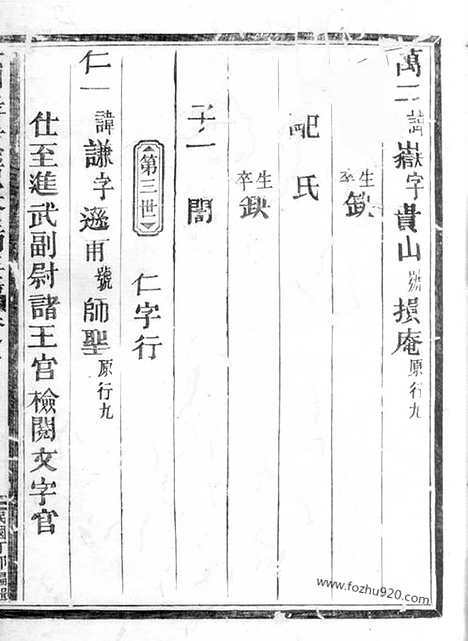 萬二諱嶽字貴山號損庵原行九
生卒缺
配氏
生卒缺
子一闇
第三世 仁字行
仁一諱謙字遜甫號師聖原行九
仕至進武副尉諸王官檢閱文字官
www.fozhu920.com